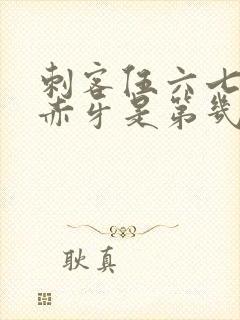 刺客伍六七
赤牙是第几
耿真